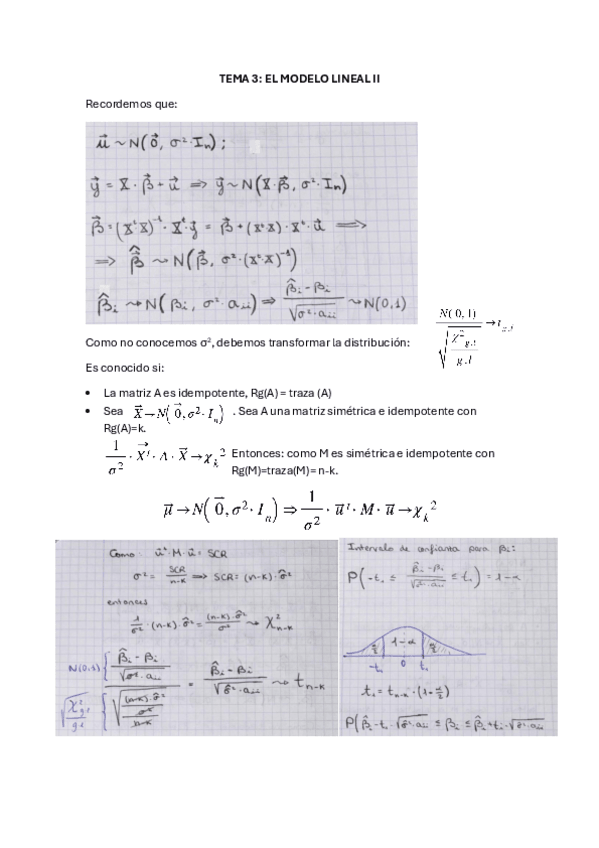 TEMA 3: EL MODELO LINEAL II
Recordemos que:
u⃗ ~ N(0⃗, σ²·Iₙ) ;
y⃗ = X · β⃗ + u⃗ ⇒ y⃗ ~ N(X·β⃗, σ²·Iₙ)
β⃗ = (XᵗX)⁻¹ · Xᵗ·y⃗ = β⃗ + (XᵗX) · Xᵗ · u⃗ ⟹
⇒ β̂⃗ ~ N(β⃗, σ²·(XᵗX)⁻¹)
β̂ᵢ ~ N(βᵢ, σ²·aᵢᵢ) ⇒ (β̂ᵢ - βᵢ) / √(σ²·aᵢᵢ) ~ N(0,1)
Como no conocemos σ², debemos transformar la distribución: N(0, 1) / √(χ²g.l / g.l) → t g.l
Es conocido si:
• La matriz A es idempotente, Rg(A) = traza (A)
• Sea X⃗ → N(0⃗, σ²· Iₙ) . Sea A una matriz simétrica e idempotente con
Rg(A)=k.
1/σ² · X⃗ᵗ · A · X⃗ → χₖ² Entonces: como M es simétrica e idempotente con
Rg(M)=traza(M)= n-k.
μ⃗ → N(0⃗, σ²· Iₙ) ⇒ 1/σ² · u⃗ᵗ · M · u⃗ → χₖ²
Como u⃗ᵗ·M·u⃗ = SCR
σ² = SCR/(n-k) ⟹ SCR = (n-k)·σ̂²
entonces
1/σ² · (n-k)·σ̂² = (n-k)·σ̂²/σ² ~ χ²ₙ₋ₖ
N(0,1) { (β̂ᵢ - βᵢ) / √(σ²·aᵢᵢ)
√(χ²g.l / g.l) { √((n-k)·σ̂² / σ² / n-k)
= (β̂ᵢ - βᵢ) / √(σ̂²·aᵢᵢ) ~ tₙ₋ₖ
Intervalo de confianza para βᵢ:
P(-t₁ ≤ (β̂ᵢ - βᵢ) / √(σ̂²·aᵢᵢ) ≤ t₁) = 1-α
α/2 1-α α/2
-t₁ 0 t₁
t₁ = tₙ₋ₖ · (1-α/2)
P(β̂ᵢ - t₁·√(σ̂²·aᵢᵢ) ≤ βᵢ ≤ β̂ᵢ + t₁·√(σ̂²·aᵢᵢ)